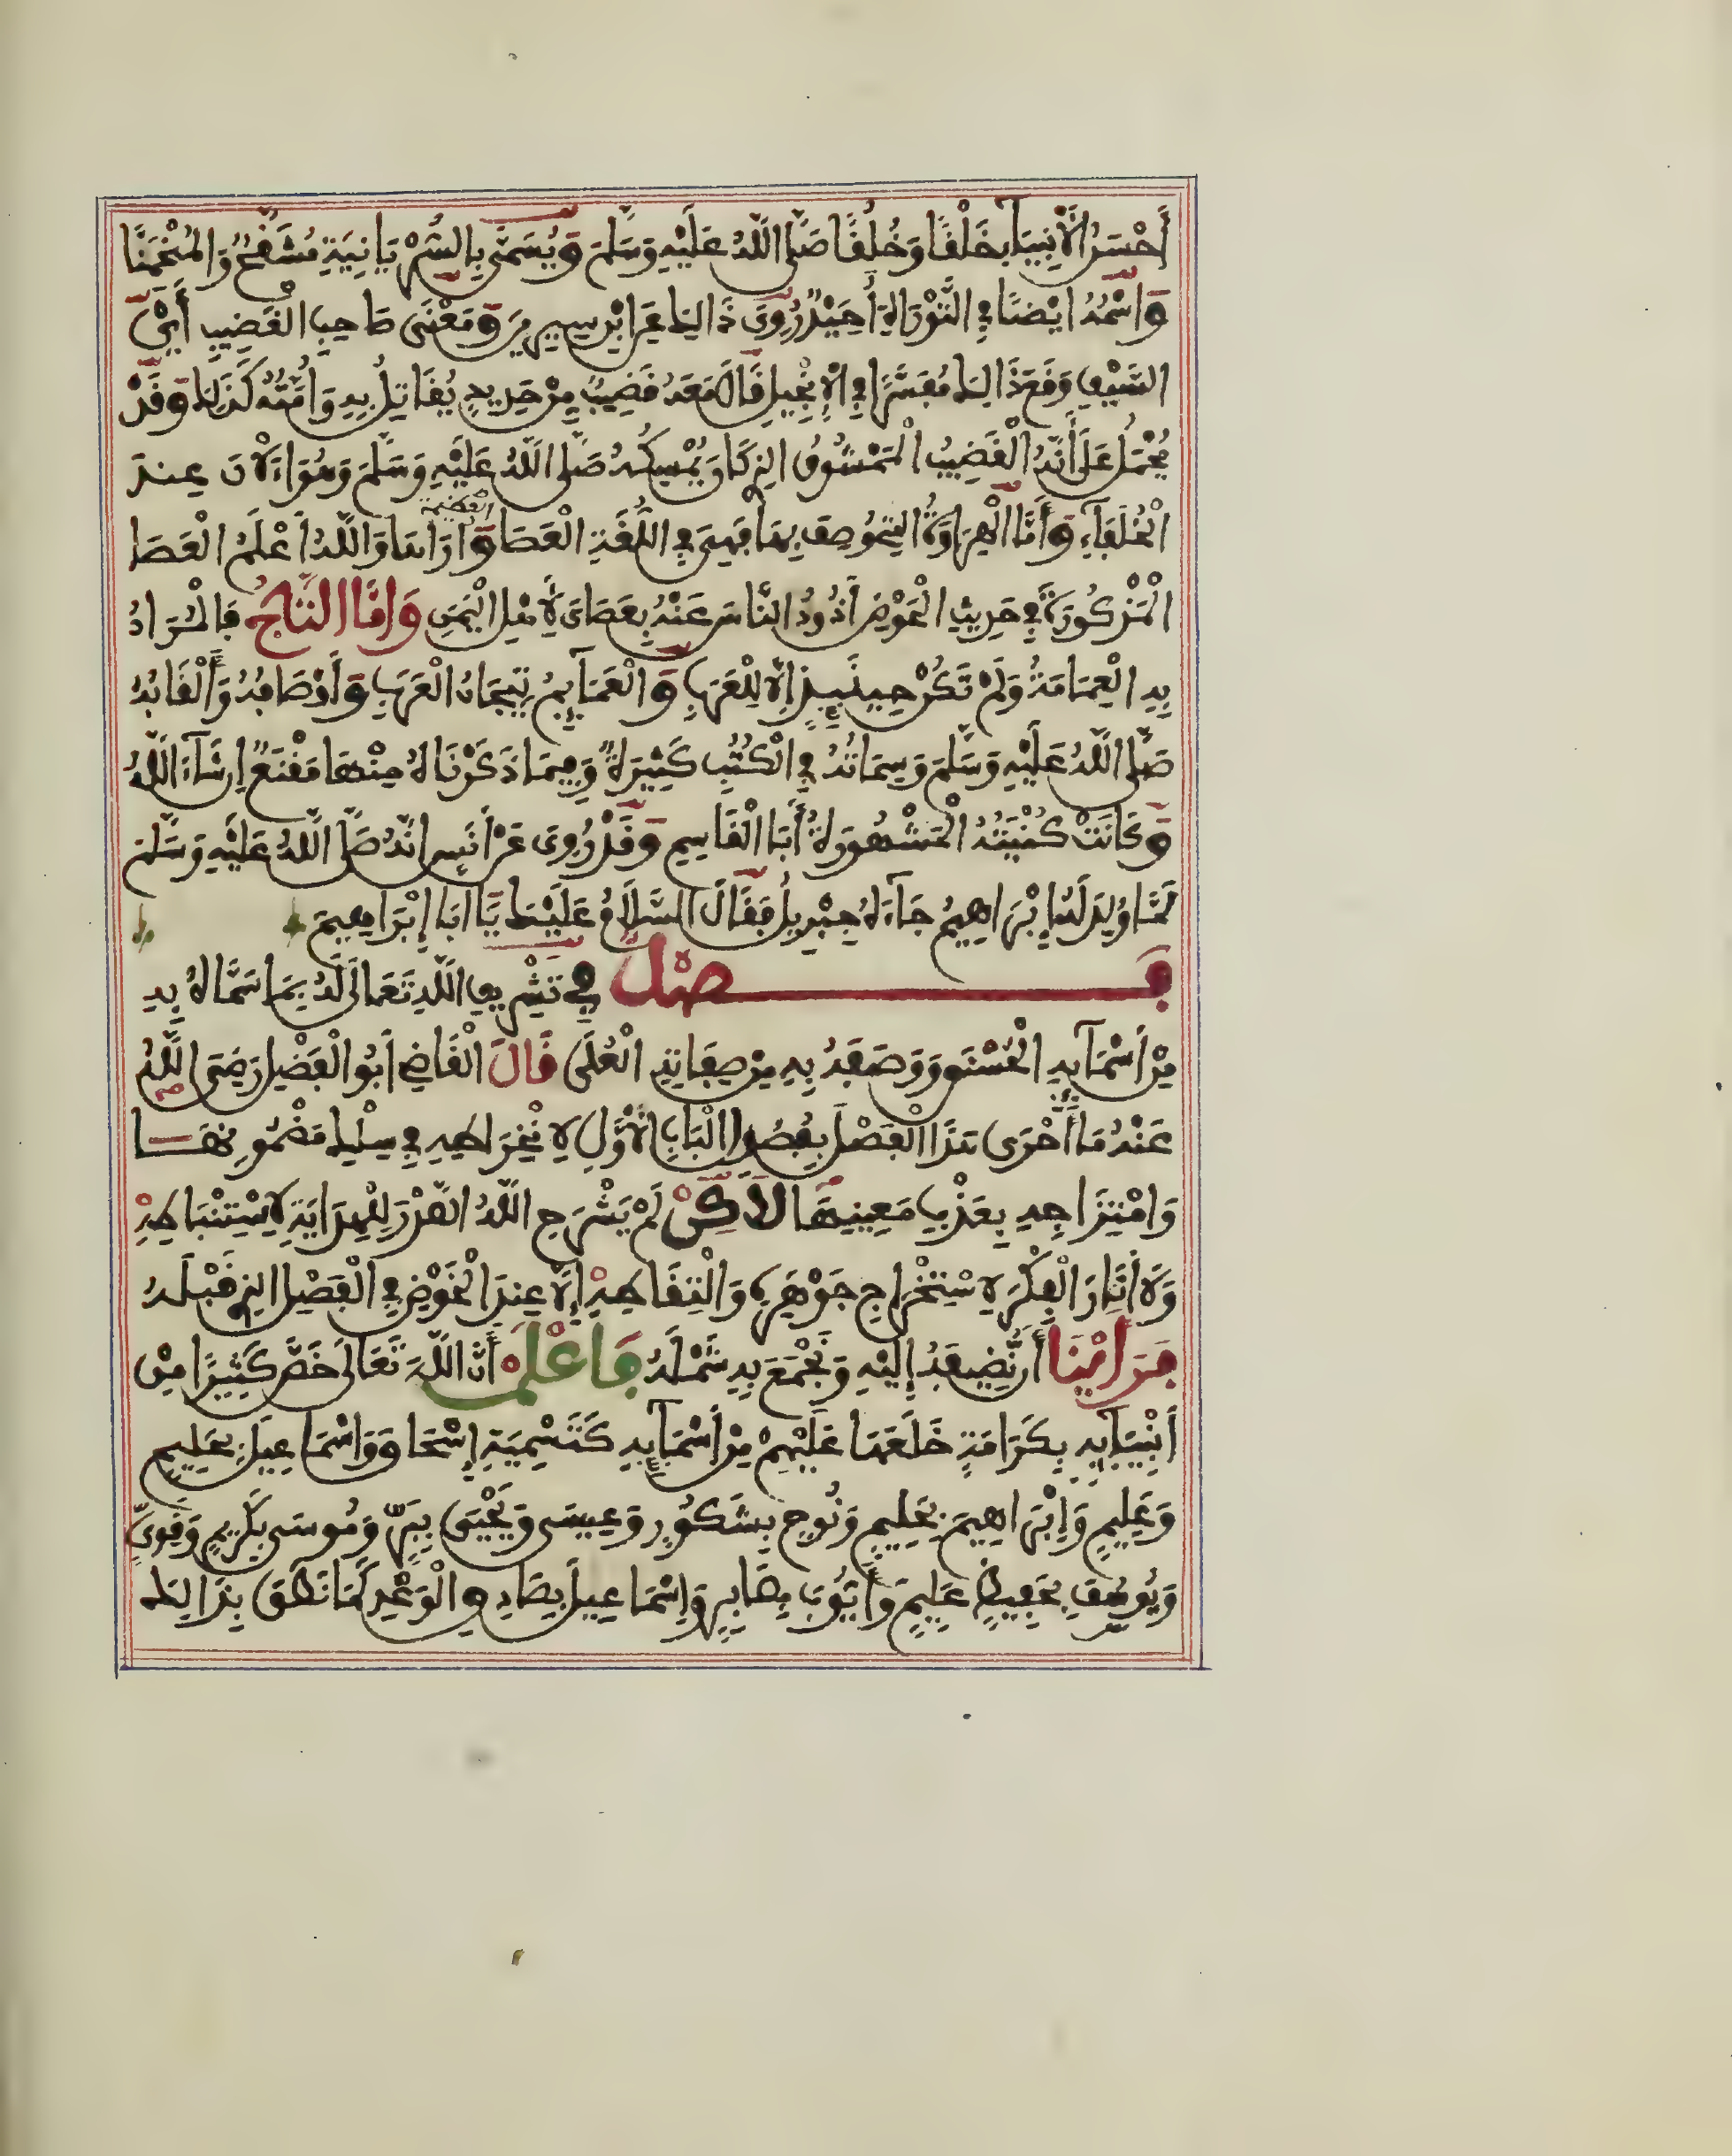 أَحْسَنُ الْأَنْبِيَاءِ خَلْقًا وَخُلُقًا صَلَّى اللَّهُ عَلَيْهِ وَسَلَّمَ وَيُسَمَّى بِالسُّرْيَانِيَةِ مُشَفَّحُ وَالْمُنْحَمَنَّا
وَاسْمُهُ أَيْضًا فِي التَّوْرَاةِ أُحَيْدُ رُوِيَ ذَالِكَ عَنِ ابْنِ سِيرِينَ وَمَعْنَى صَاحِبِ الْقَضِيبِ أَيِ
السَّيْفِ وَقَعَ ذَالِكَ مُفَسَّرًا فِي الْإِنْجِيلِ قَالَ مَعَهُ قَضِيبٌ مِنْ حَدِيدٍ يُقَاتِلُ بِهِ وَأُمَّتُهُ كَذَلِكَ وَقَدْ
يُحْمَلُ عَلَى أَنَّهُ الْقَضِيبُ الْمَمْشُوقُ الذِي كَانَ يُمْسِكُهُ صَلَّى اللَّهُ عَلَيْهِ وَسَلَّمَ وَهُوَ الْآنَ عِنْدَ
الْخُلَفَاءِ وَأَمَّا الْهِرَاوَةُ التِي وُصِفَ بِهَا فَهِيَ فِي اللُّغَةِ الْعَصَا الْعَظِيمَةُ وَأُرَاهَا وَاللَّهُ أَعْلَمُ الْعَصَا
الْمَذْكُورَةَ فِي حَدِيثِ الْحَوْضِ أَذُودُ النَّاسَ عَنْهُ بِعَصَايَ لِأَهْلِ الْيَمَنِ وَأَمَّا التَّاجُ فَالْمُرَادُ
بِهِ الْعِمَامَةُ وَلَمْ تَكُنْ حِينَئِذٍ إِلَّا لِلْعَرَبِ وَالْعَمَائِمُ تِيجَانُ الْعَرَبِ وَأَوْصَافُهُ وَأَلْقَابُهُ
صَلَّى اللَّهُ عَلَيْهِ وَسَلَّمَ وَسِمَاتُهُ فِي الْكُتُبِ كَثِيرَةٌ وَفِيمَا ذَكَرْنَاهُ مِنْهَا مَقْنَعٌ إِنْ شَاءَ اللَّهُ
وَكَانَتْ كُنْيَتُهُ الْمَشْهُورَةُ أَبَا الْقَاسِمِ وَقَدْ رُوِيَ عَنْ أَنَسٍ أَنَّهُ صَلَّى اللَّهُ عَلَيْهِ وَسَلَّمَ
لَمَّا وُلِدَ لَهُ إِبْرَاهِيمُ جَاءَهُ جِبْرِيلُ فَقَالَ السَّلَامُ عَلَيْكَ يَا أَبَا إِبْرَاهِيمَ
فَصْلٌ فِي تَشْرِيفِ اللَّهِ تَعَالَى لَهُ بِمَا سَمَّاهُ بِهِ
مِنْ أَسْمَائِهِ الْحُسْنَى وَوَصَفَهُ بِهِ مِنْ صِفَاتِهِ الْعُلَى قَالَ الْقَاضِي أَبُو الْفَضْلِ رَضِيَ اللَّهُ
عَنْهُ مَا أَحْرَى هَذَا الْفَصْلَ بِفُصُولِ الْبَابِ الْأَوَّلِ لِانْخِرَاطِهِ فِي سِلْكِ مَضْمُونِهَا
وَامْتِزَاجِهِ بِعَذْبِ مَعِينِهَا لَاكِنْ لَمْ يَشْرَحِ اللَّهُ الصَّدْرَ لِلْهِدَايَةِ لِاسْتِنْبَاطِهِ
وَلَا أَنَارَ الْفِكْرَ لِاسْتِخْرَاجِ جَوْهَرِهِ وَالْتِقَاطِهِ إِلَّا عِنْدَ الْخَوْضِ فِي الْفَصْلِ الذِي قَبْلَهُ
فَرَأَيْنَا أَنْ نُضِيفَهُ إِلَيْهِ وَنَجْمَعَ بِهِ شَمْلَهُ فَاعْلَمْ أَنَّ اللَّهَ تَعَالَى خَصَّ كَثِيرًا مِنْ
أَنْبِيَائِهِ بِكَرَامَةٍ خَلَعَهَا عَلَيْهِمْ مِنْ أَسْمَائِهِ كَتَسْمِيَةِ إِسْحَاقَ وَاسْمَاعِيلَ بِعَلِيمٍ
وَحَلِيمٍ وَإِبْرَاهِيمَ بِحَلِيمٍ وَنُوحٍ بِشَكُورٍ وَعِيسَى وَيَحْيَى بِبَرٍّ وَمُوسَى بِكَرِيمٍ وَقَوِيٍّ
وَيُوسُفَ بِحَفِيظٍ عَلِيمٍ وَأَيُّوبَ بِصَابِرٍ وَإِسْمَاعِيلَ بِصَادِقِ الْوَعْدِ كَمَا نَطَقَ بِذَالِكَ